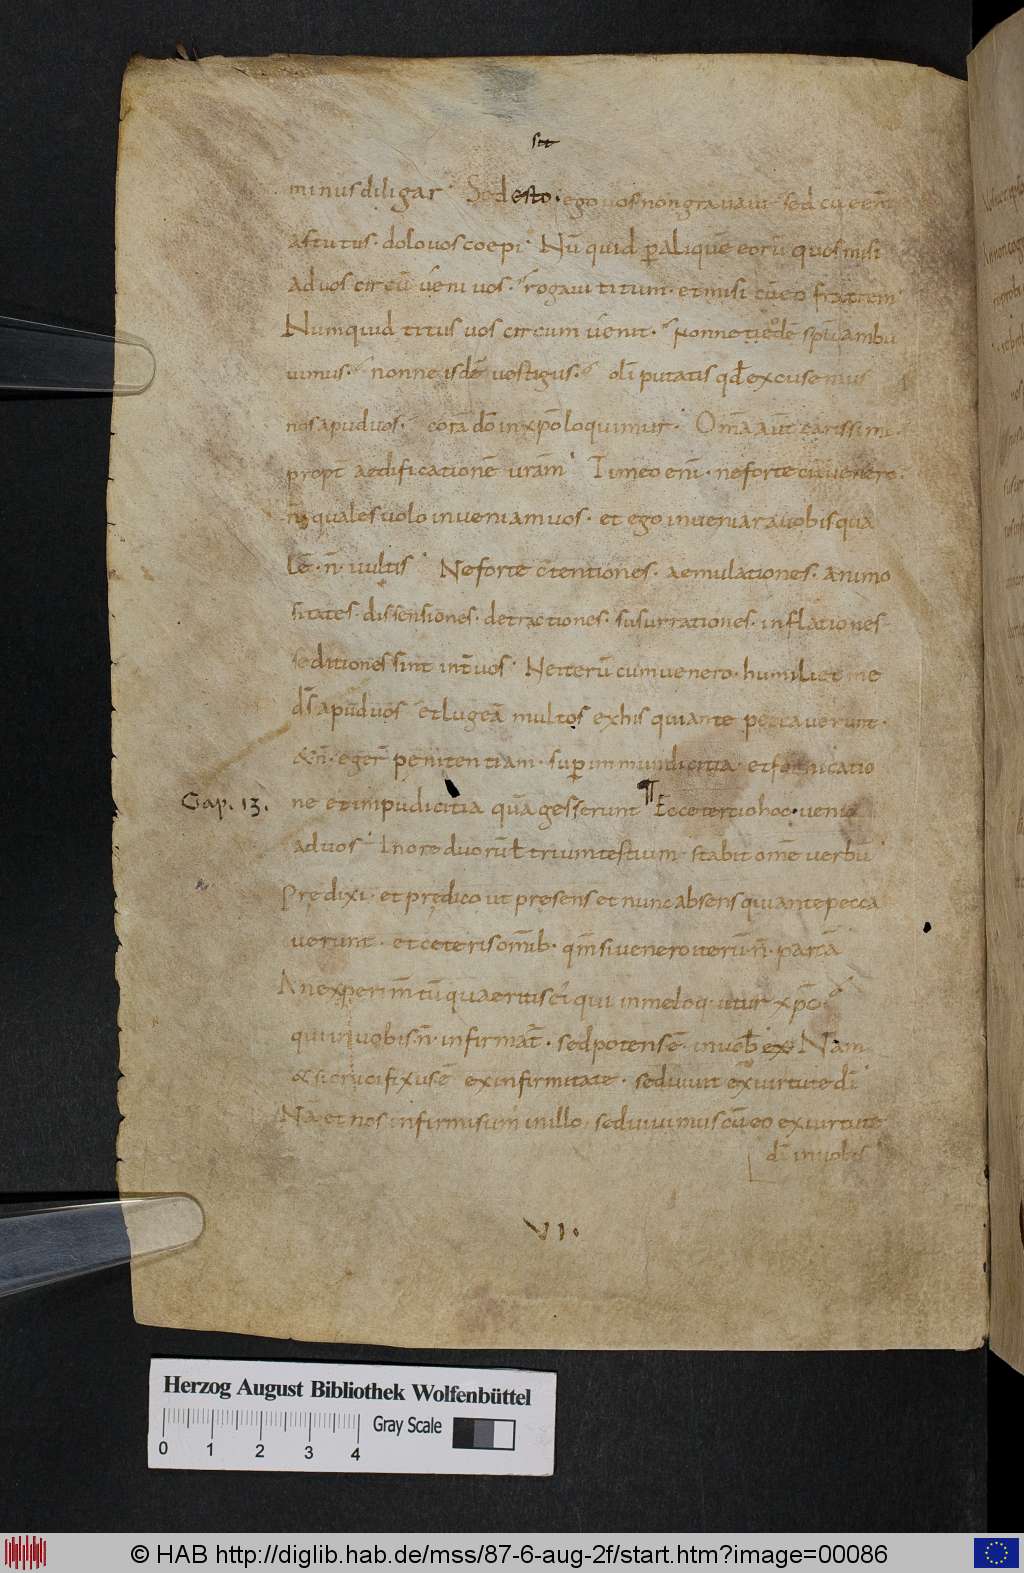 sit
minus diligar· Sed esto· ego vos non gravavi· sed cū eēm
astutus· dolo vos coepi· Nū quid p̄ aliquē eorū quos misi
ad vos circū veni vos· rogavi titum· et misi cū eo fratrem
Numquid titus vos circum venit· Nonne eodē sp̄u ambu
vimus· nonne isdē vestigiis· oli putatis qđ excusemus
nos apud vos· corā dō in xp̄o loquimur· Omā aūt carissimi·
propt̄ aedificationē urām· Timeo enī· ne forte cū venero·
n̄ quales volo inveniam vos· et ego inveniar a vobis qua
lē·n̄·vultis· Ne forte c̄tentiones· aemulationes· animo
sitates· dissensiones· detractiones· susurrationes· inflationes·
seditiones sint int̄ vos· Ne iterū cum venero· humiliet me
d̄s apūd vos et lugeā multos ex his qui ante peccaverunt·
&n̄· eger̄ penitentiam· sup̄ inmundicitia· et fornicatio
Cap. 13.
ne et inpudicitia quā gesserunt ¶ Ecce tertio hoc· venio
ad vos· In ore duorū ł trium testium· stabit omē verbū·
Prędixi· et prędico ut presens et nunc absens qui ante pecca
verunt· et ceteris omīb· qm̄ si venero iterū·n̄· parcā
An experim̄tū quaeritis ei qui in me loq·itur xp̄c·
qui in vobis·n̄·infirmat̄· sed potens ē· in vob̄ ex· Nam
& si crucifixus ē ex infirmitate· sed vivit ex virtute dī
Nā et nos infirmi sum̄ in illo· sed vivimus cū eo ex virtute
dī in vobis
VI·
Herzog August Bibliothek Wolfenbüttel
Gray Scale
0 1 2 3 4
© HAB http://diglib.hab.de/mss/87-6-aug-2f/start.htm?image=00086